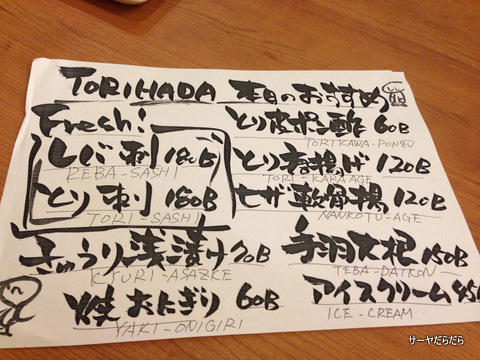 TORIHADA 本日のおすすめ
Fresh!
レバ刺 180B
REBA-SASHI
とり刺 180B
TORI-SASHI
きゅうり浅漬け 70B
KYURI-ASAZKE
焼おにぎり 60B
YAKI-ONIGIRI
とり皮ポン酢 60B
TORIKAWA-PONZU
とり唐揚げ 120B
TORI-KARAAGE
ヒザ軟骨揚 120B
NANKOTU-AGE
手羽大根 150B
TEBA-DAIKON
アイスクリーム 45
ICE-CREAM
サーヤだらだら